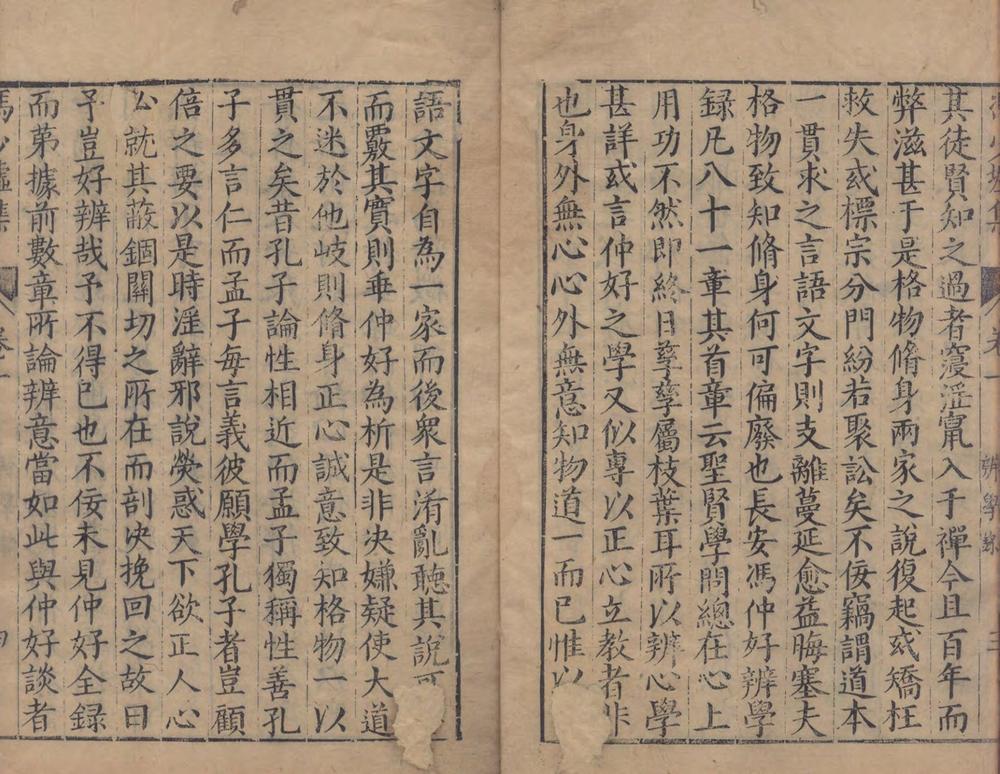 其徒賢知之過者寖淫竄入于禪今且百年而
弊滋甚于是格物脩身兩家之說復起或矯枉
救失或標宗分門紛若聚訟矣不佞竊謂道本
一貫求之言語文字則支離蔓延愈益晦塞夫
格物致知脩身何可偏廢也長安馮仲好辨學
録凡八十一章其首章云聖賢學問總在心上
用功不然即終日孳孳屬枝葉耳所以辨心學
甚詳或言仲好之學又似專以正心立教者非
也身外無心心外無意知物道一而已惟以
語文字自為一家而後衆言淆亂聽其說可
而覈其實則乖仲好為析是非决嫌疑使大道
不迷於他岐則脩身正心誠意致知格物一以
貫之矣昔孔子論性相近而孟子獨稱性善孔
子多言仁而孟子每言義彼願學孔子者豈顧
倍之要以是時淫辭邪說熒惑天下欲正人心
必就其蔽錮關切之所在而剖决挽回之故曰
予豈好辨哉予不得已也不佞未見仲好全録
而第據前數章所論辨意當如此與仲好談者
馮少墟集
卷一
四